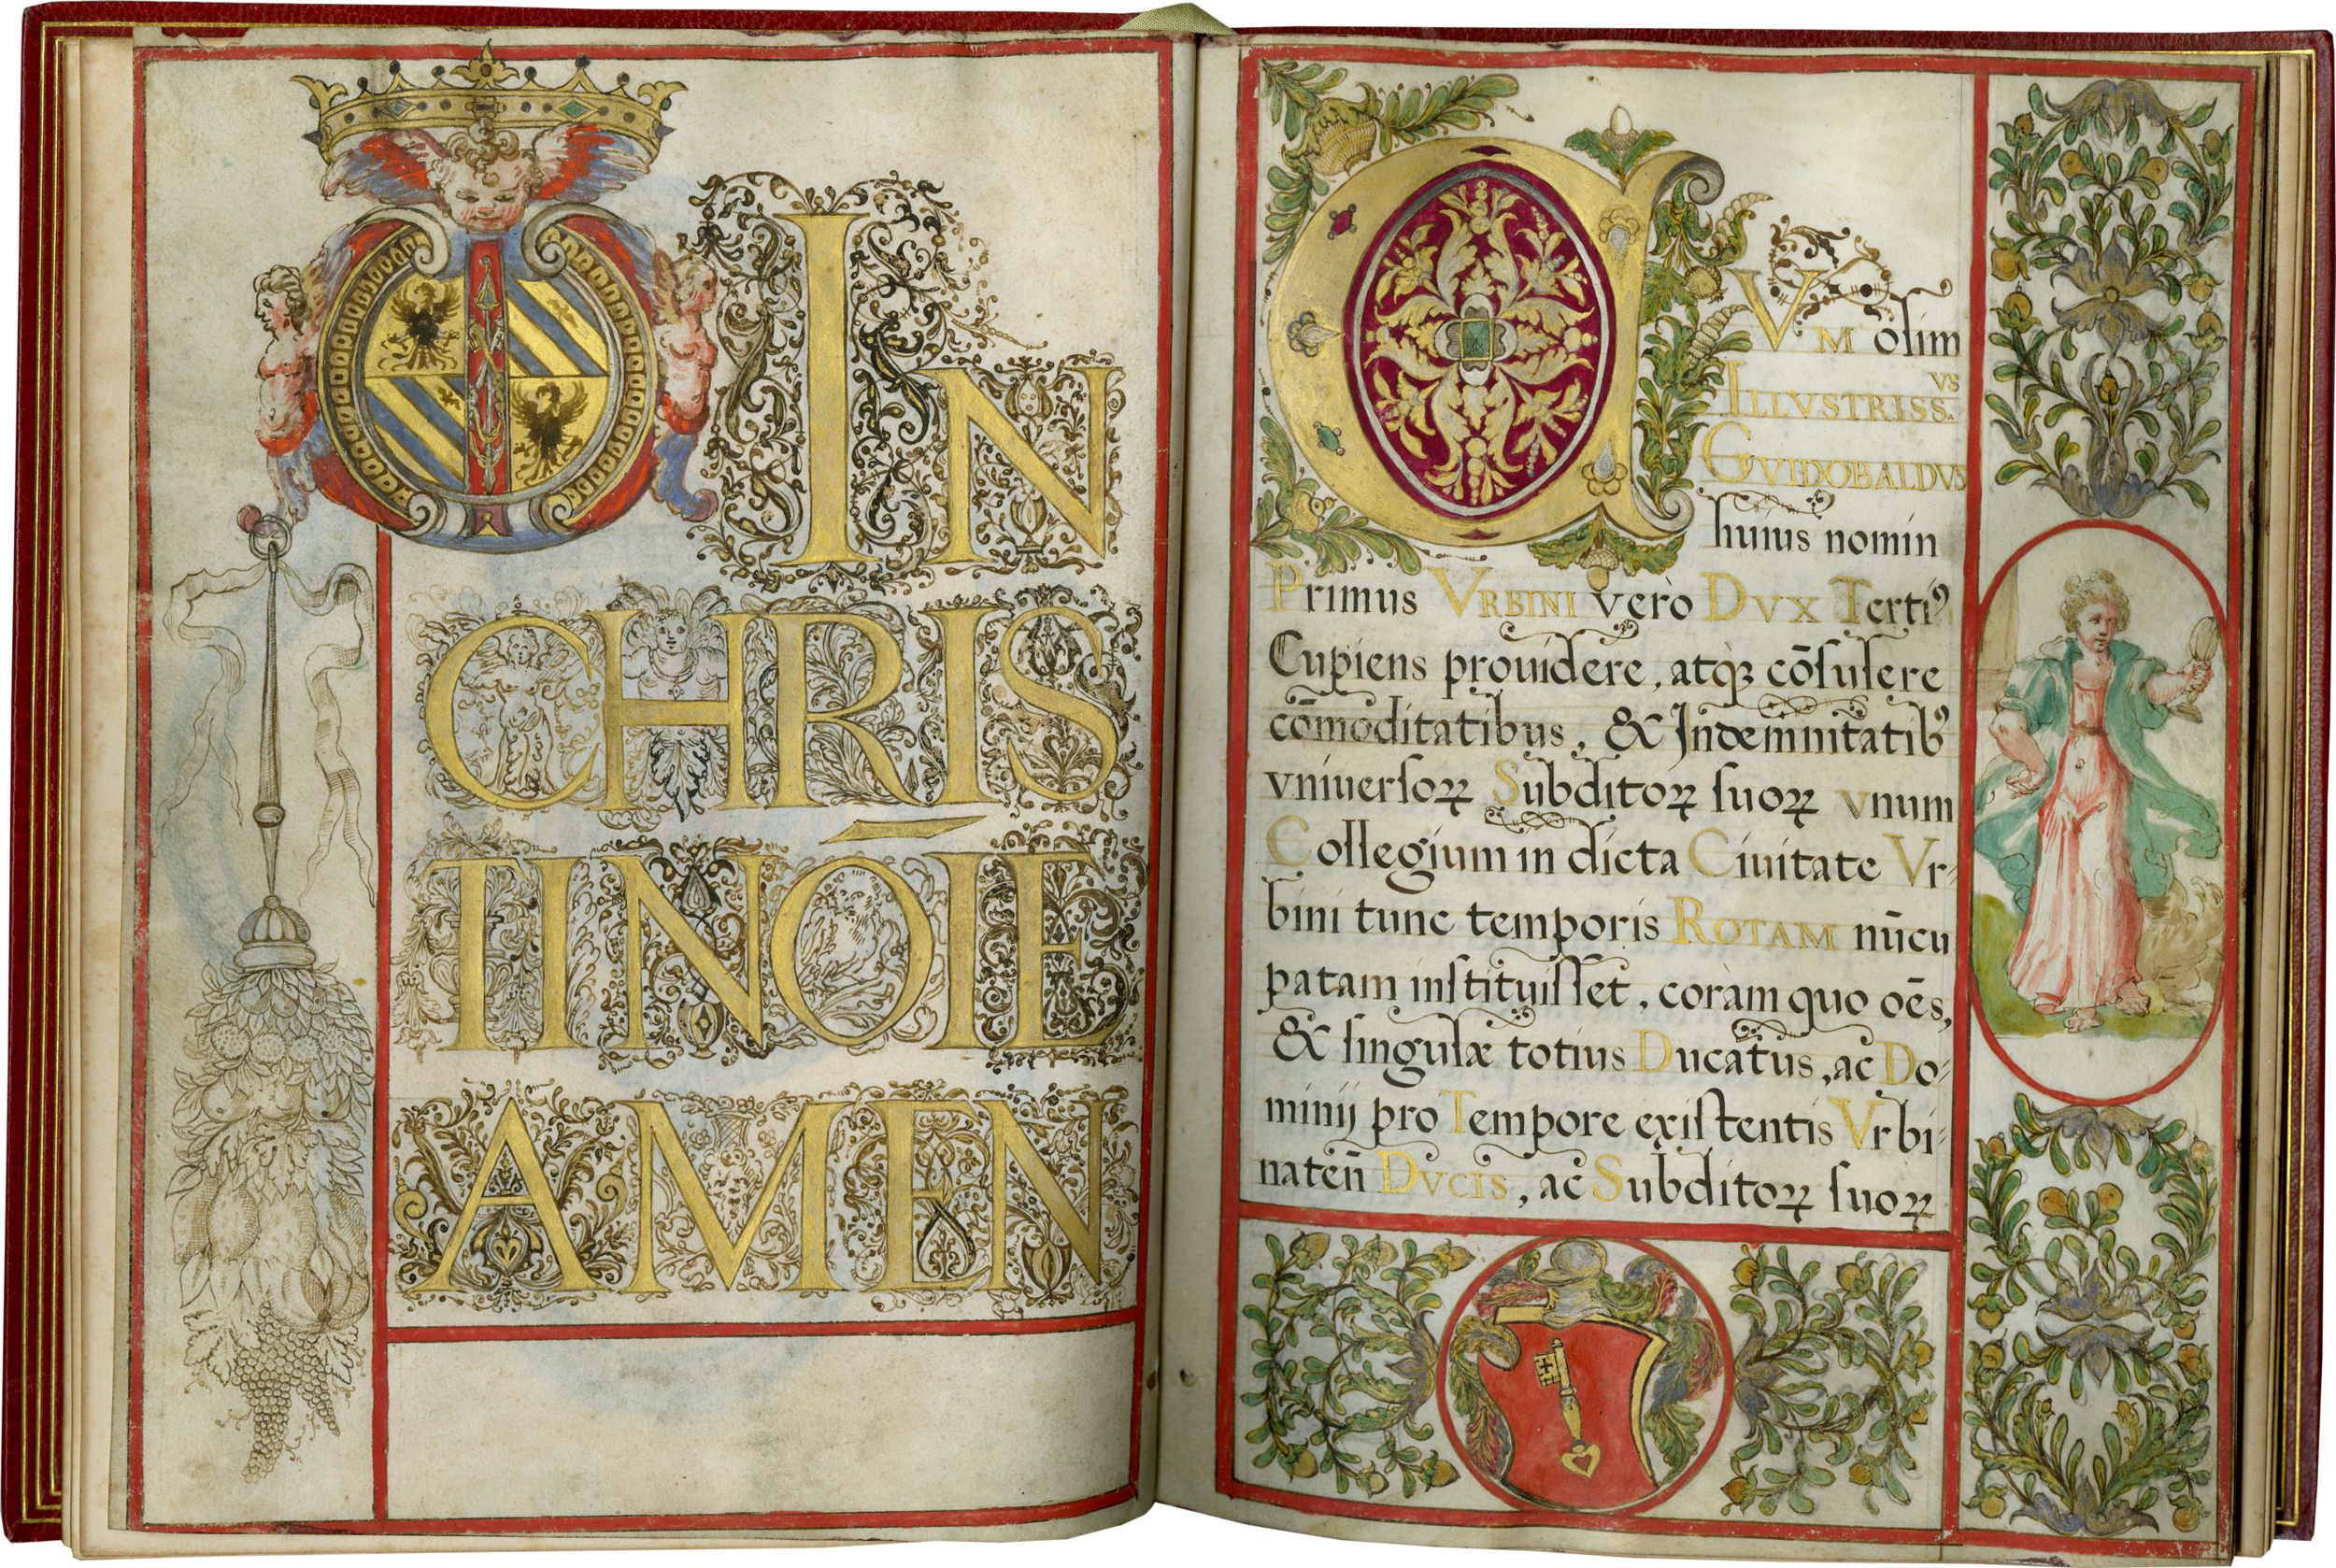 IN
CHRIS
TINŌIE
AMEN
CVM olim
ILLVSTRISS.VS
GVIDOBALDVS
huius nomin
Primus VRBINI verò DVX Terti⁹
Cupiens prouidere, atq̀ꝫ cōsulere
cōmoditatibus, & Indemnitatib⁹
vniuersoꝝ Subditoꝝ suoꝝ vnum
Collegium in dicta Ciuitate Vr-
bini tunc temporis ROTAM nūcu
patam instituisset, coràm quo oēs,
& singulæ totius Ducatus, ac Do-
minij pro Tempore existentis Vrbi-
nateñ DVCIS, ac Subditoꝝ suoꝝ